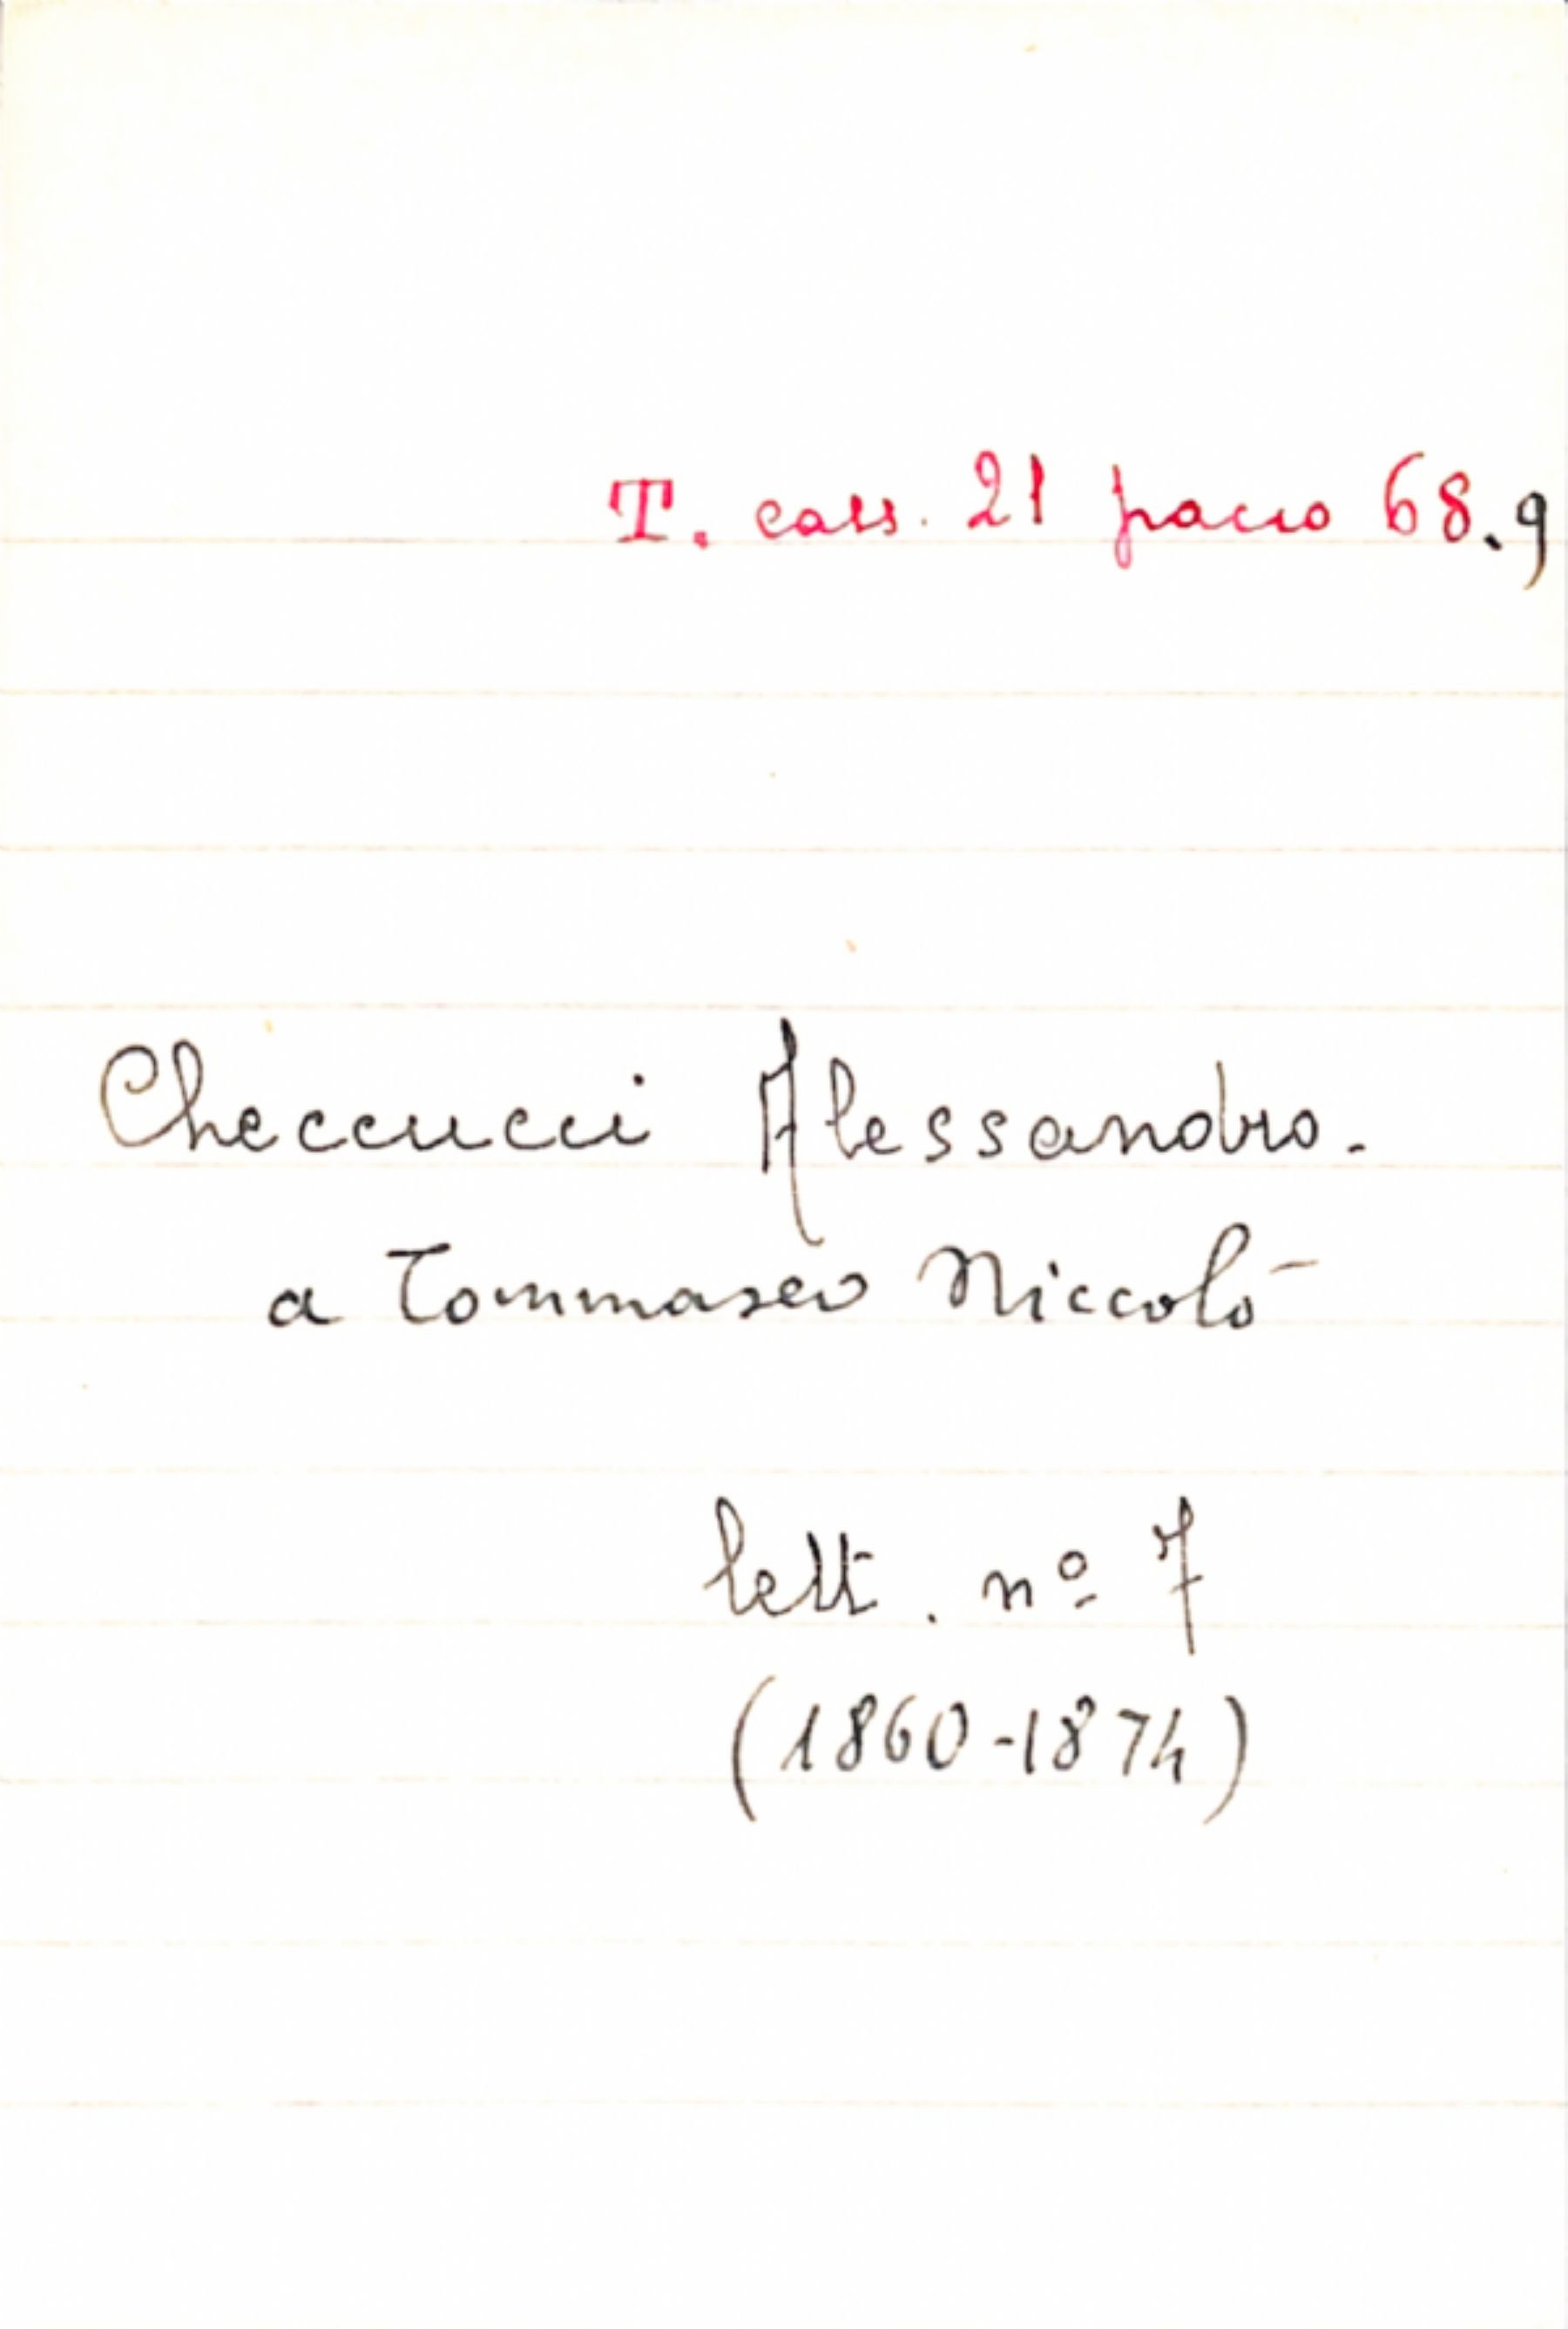 T. cass. 21 pacco 68.9
Checcucci Alessandro.
a Tommaseo Niccolò
lett. nº 7
(1860-1874)